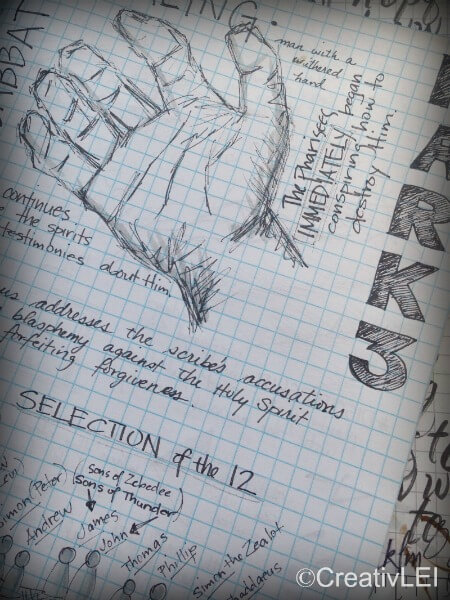 man with a
withered
hand
The Pharisees
IMMEDIATELY began
conspiring how to
destroy Him.
MARK 3
continues
the spirits
testimonies about Him.
us addresses the scribe's accusations
blasphemy against the Holy Spirit
forfeiting forgiveness.
SELECTION of the 12
Simon (Peter)
Andrew
(sons of Zebedee
sons of Thunder)
James
John
Thomas
Phillip
Simon the Zealot
Thaddaeus
©CreativLEI